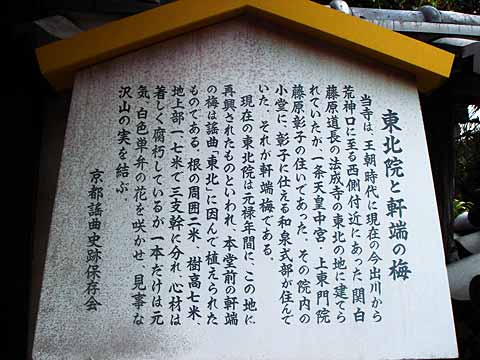 東北院と軒端の梅
当寺は、王朝時代に現在の今出川から
荒神口に至る西側付近にあった 関白
藤原道長の法成寺の東北の地に建てら
れていたが、一条天皇中宮・上東門院
藤原彰子の住いであった。その院内の
小堂に、彰子に仕える和泉式部が住んで
いた。それが軒端梅である。
現在の東北院は元禄年間に、この地に
再興されたものといわれ、本堂前の軒端
の梅は謡曲「東北」に因んで植えられた
ものである。根の周囲二米、樹高七米、
地上部一、七米で三支幹に分れ、心材は
著しく腐朽しているが 一本だけは元
気、白色単弁の花を咲かせ 見事な
沢山の実を結ぶ。
京都謡曲史跡保存会